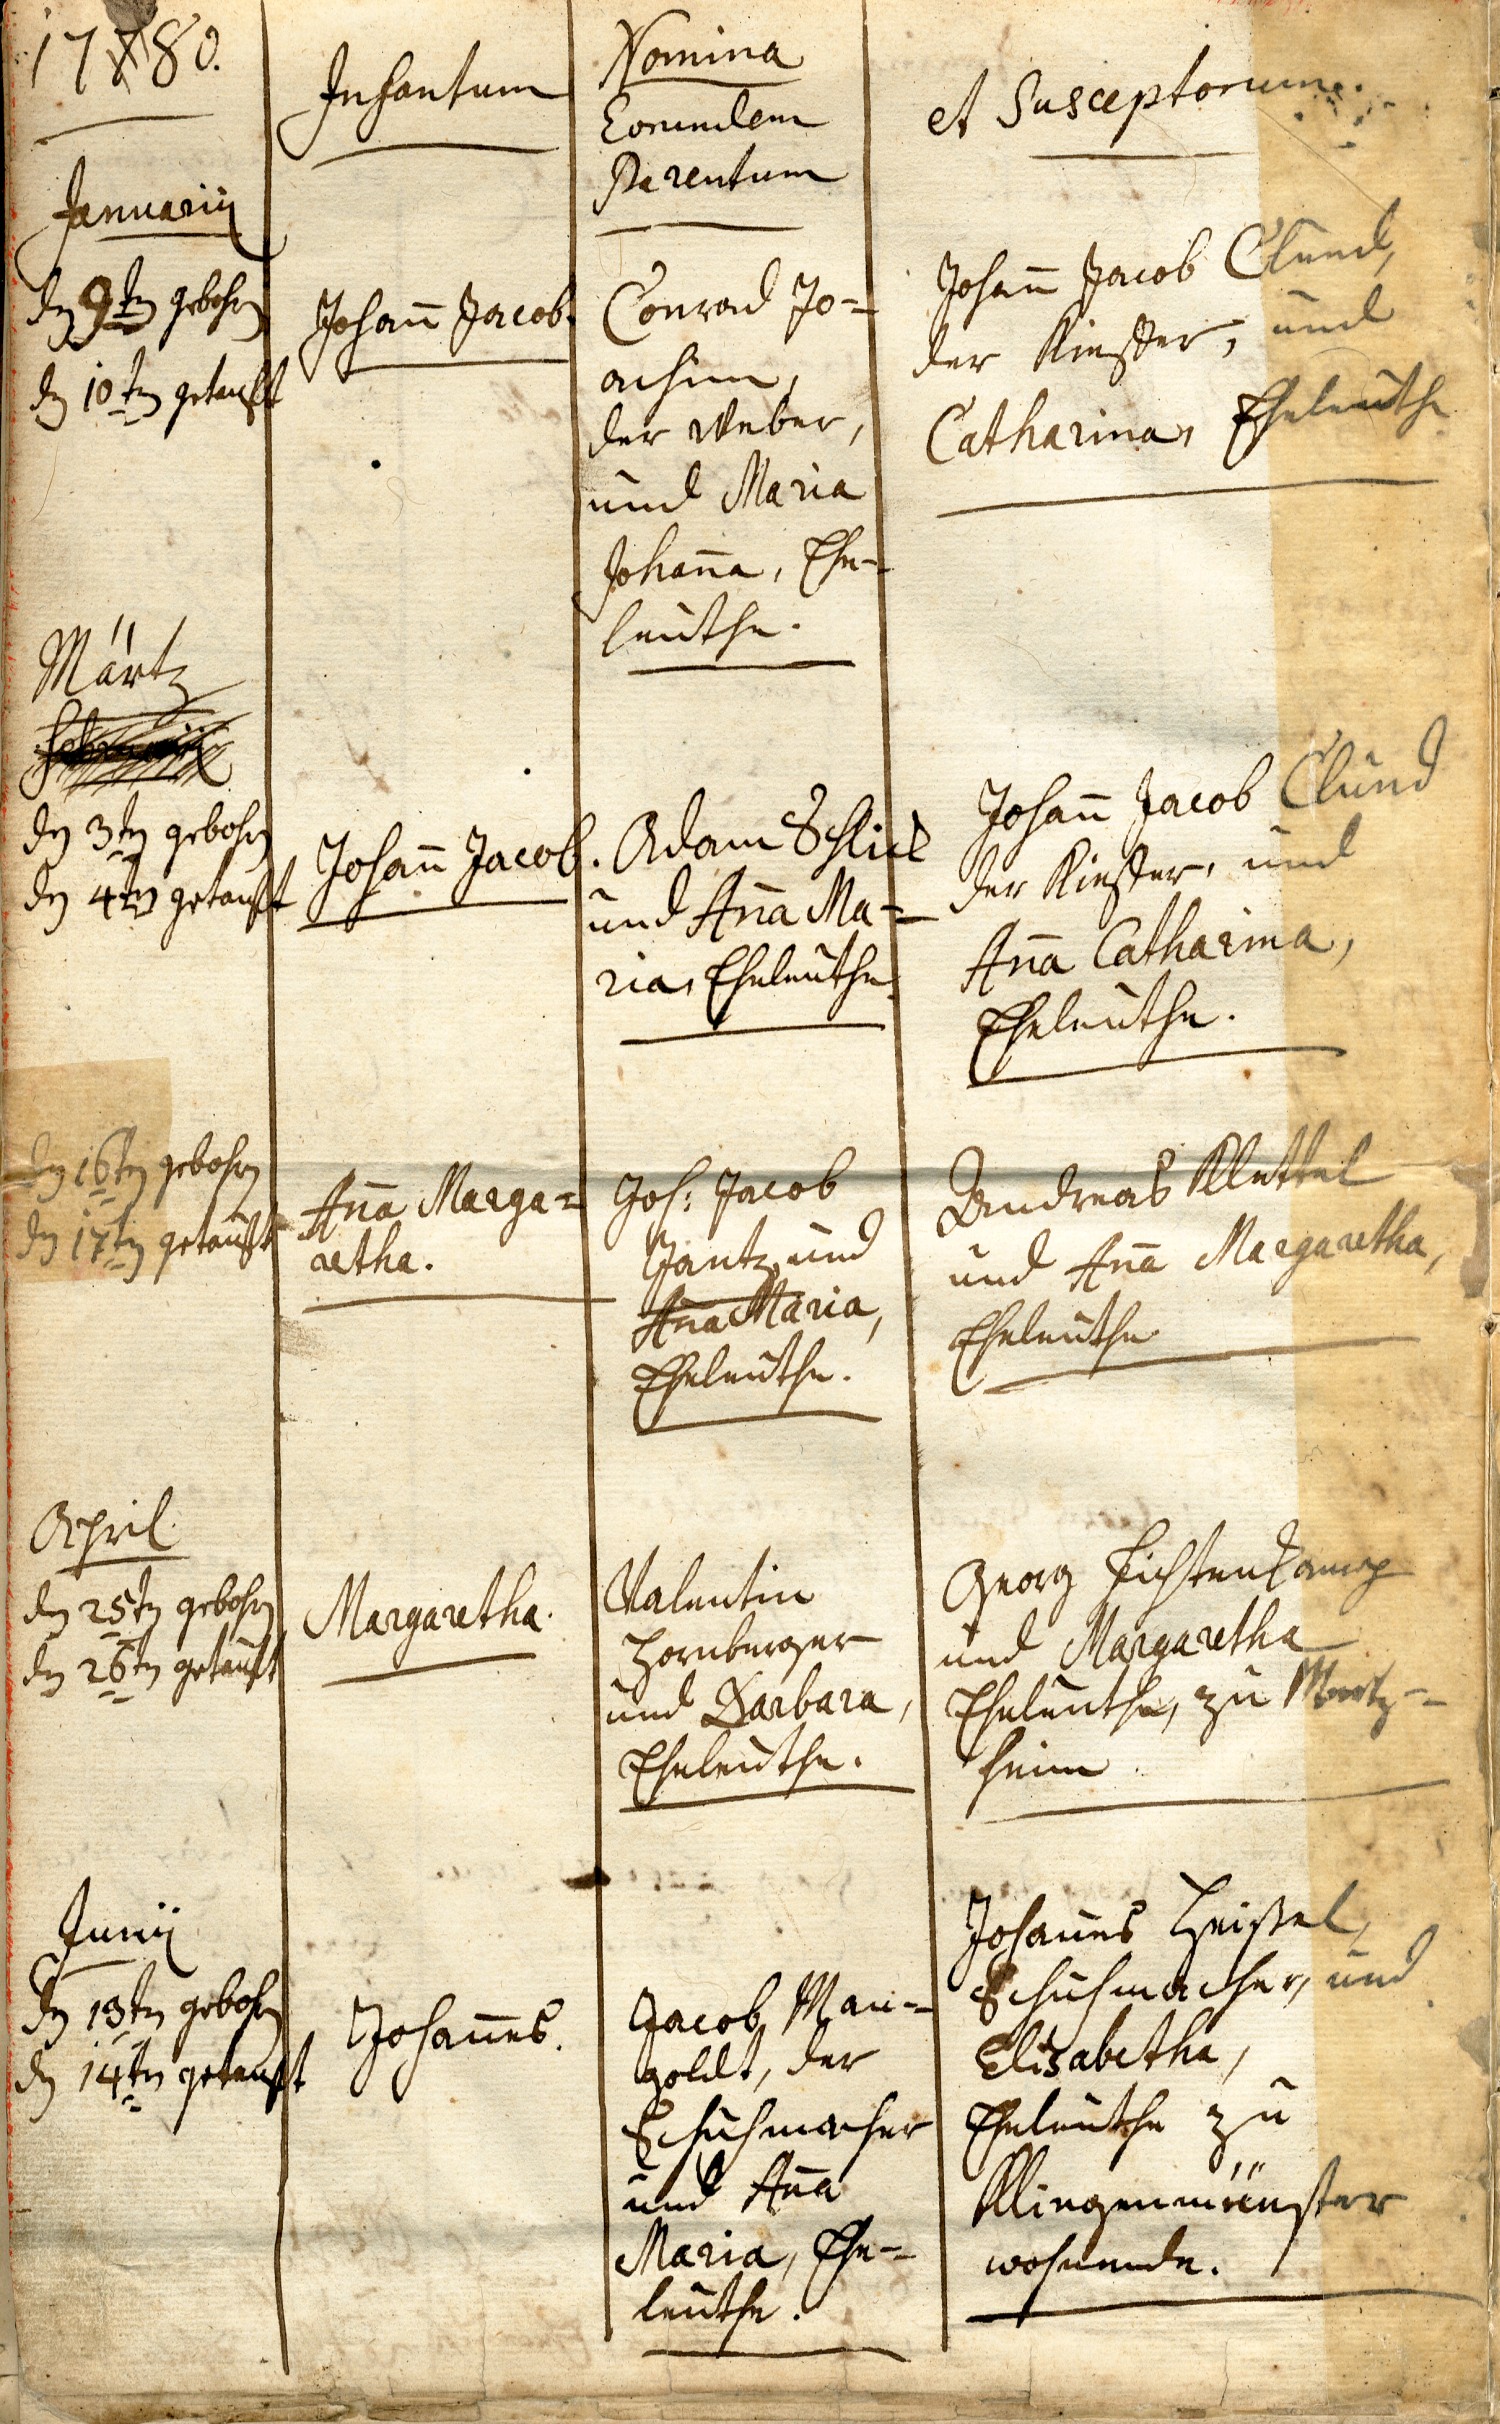 1780.
Infantum
Nomina
Eorundem
Parentum
et Susceptorum.
Januarii
dn 9tn gebohrn
dn 10tn getaufft
Johan̄ Jacob.
Conrad Jo=
achim,
der Weber,
und Maria
Johan̄a, Ehe=
leuthe.
Johan̄ Jacob Clund,
der Kieffer, und
Catharina, Eheleuthe
Märtz
dn 3tn gebohrn
dn 4tn getaufft
Johan̄ Jacob.
Adam Schlick
und An̄a Ma=
ria, Eheleuthe.
Johan̄ Jacob Clund
der Kieffer, und
An̄a Catharina,
Eheleuthe.
dn 16tn gebohrn
dn 17tn getaufft
An̄a Marga=
retha.
Joh: Jacob
Jantz und
An̄a Maria,
Eheleuthe.
Andreas Klettel
und An̄a Margaretha,
Eheleuthe
April.
dn 25tn gebohrn
dn 26tn getaufft
Margaretha.
Valentin
Hornberger
und Barbara,
Eheleuthe.
Georg Lichtenkamp
und Margaretha
Eheleuthe, zu
heim
Junii
dn 13tn gebohrn
dn 14tn getaufft
Johan̄es.
Jacob Man=
goldt, der
Schuhmacher
und An̄a
Maria, Ehe=
leuthe.
Johan̄es Heissel,
Schuhmacher, und
Elisabetha,
Eheleuthe zu
Klingenmünster
wohnende.